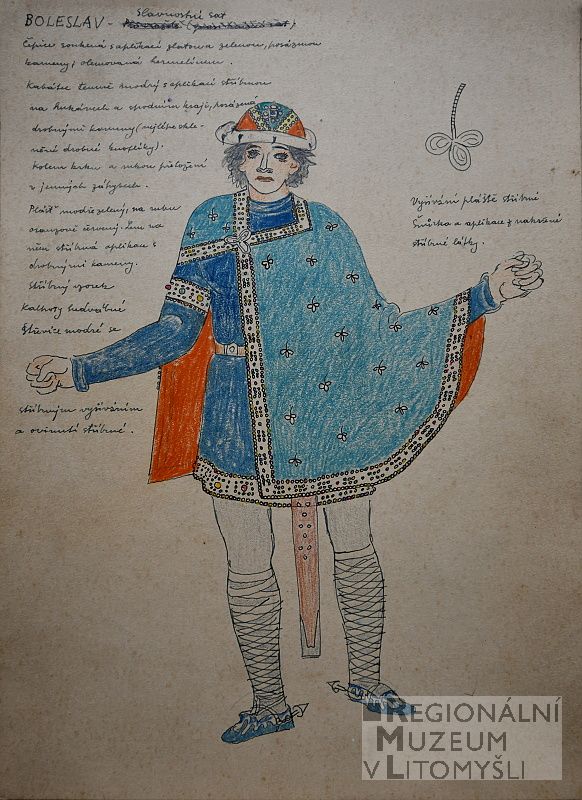 Slavnostní šat
BOLESLAV -
Čepice soukená s aplikací zlatou a zelenou, posázenou
kameny, olemovaná hermelínem.
Kabátec temně modrý s aplikací stříbrnou
na rukávech a spodním kraji, posázená
drobnými kameny (nejlépe skle-
něné drobné knoflíky).
Kolem krku a rukou přeložení
v jemných záhybech.
Plášť modrozelený, na rubu
oranžově červený. Lem na
něm stříbrná aplikace s
drobnými kameny.
Stříbrný vzorek
Kalhoty hedvábné
Střevíce modré se
stříbrným vyšíváním
a ovinutí stříbrné.
Vyšívání pláště stříbrné
Šňůrka a aplikace z nabrané
stříbrné látky.
REGIONÁLNÍ
MUZEUM
V LITOMYŠLI